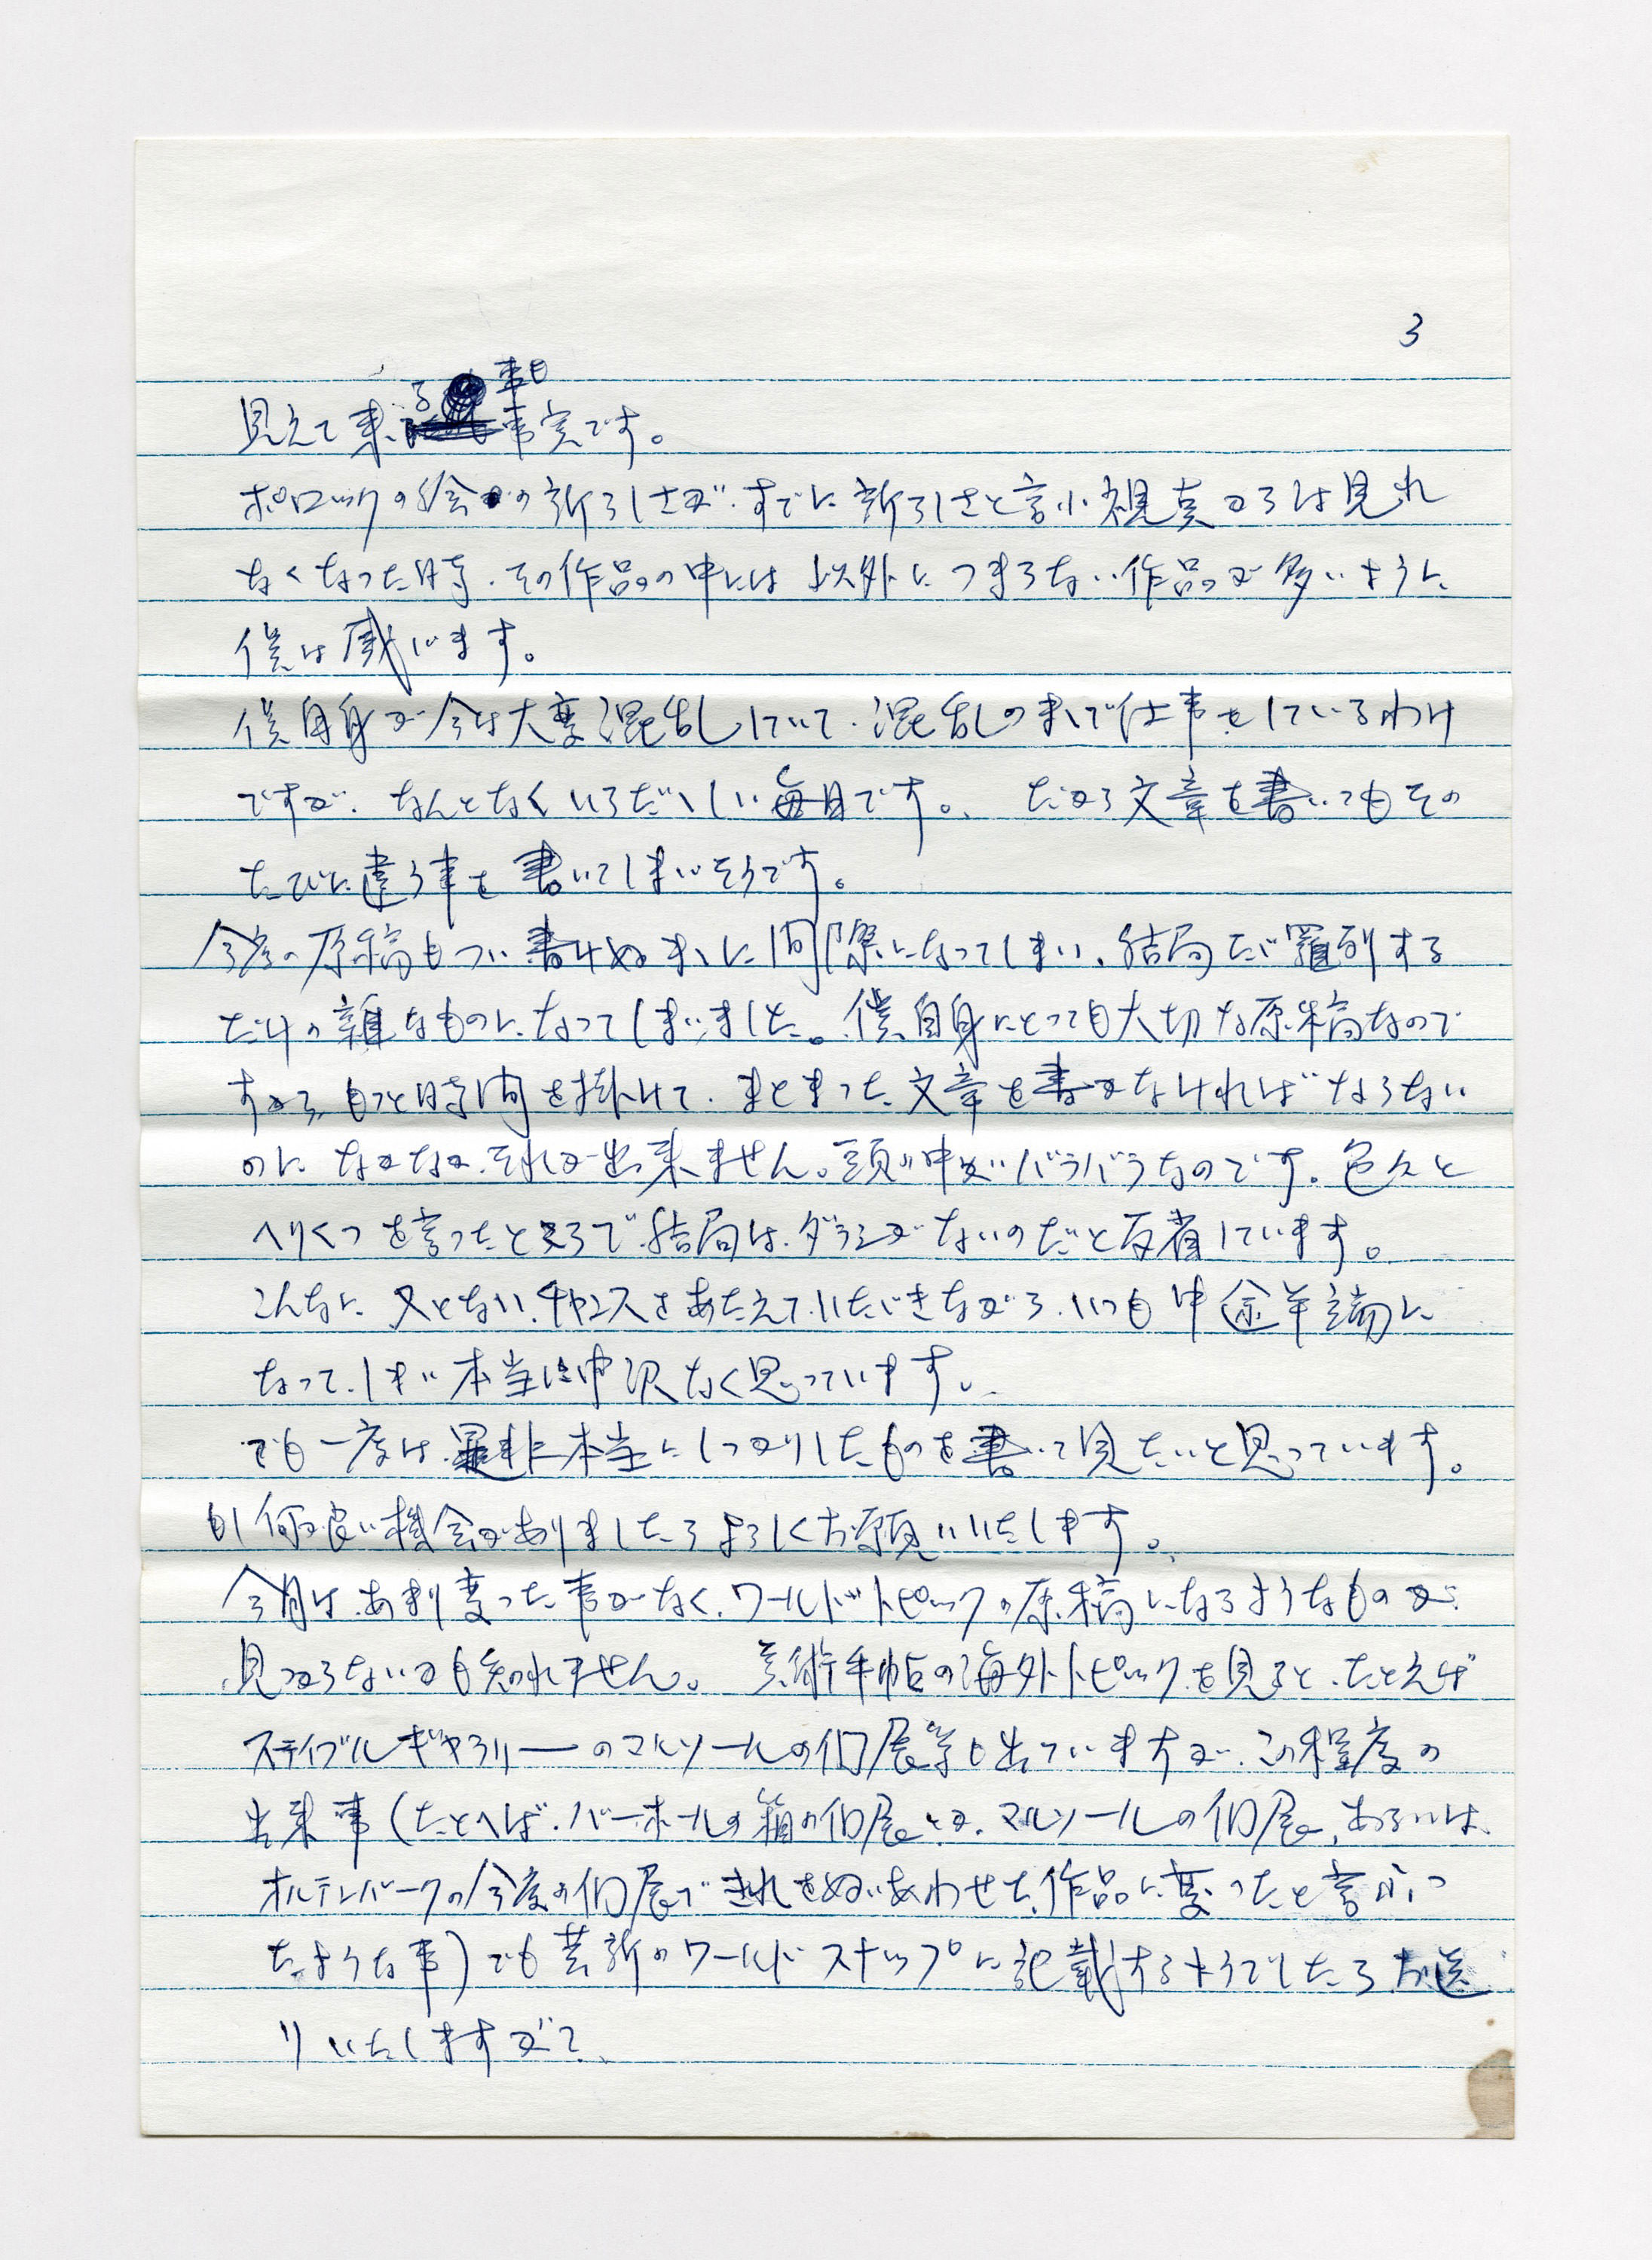 3
見えて来る事も事実です。
ポロックの絵の新らしさが、すでに新らしさと言ふ視点からは見れ
なくなった時、その作品の中には以外につまらない作品が多いように
僕は感じます。
僕自身が今は大変混乱していて、混乱のまゝで仕事をしているわけ
ですが、なんとなくいらだゝしい毎日です。だから文章を書いてもその
たびに違う事を書いてしまいそうです。
今度の原稿もつい書けぬまゝに間際になってしまい、結局たゞ羅列する
だけの雑なものになってしまいました。僕自身にとっても大切な原稿なので
すから、もっと時間を掛けて、まとまった文章を書かなければならない
のに、なかなかそれが出来ません。頭の中がバラバラなのです。色々と
へりくつを言ったところで、結局は、ダラシがないのだと反省しています。
こんなに、又とないチャンスをあたえていたゞきながら、いつも中途半端に
なってしまい本当に申訳なく思っています。
でも一度は是非本当にしっかりしたものを書いて見たいと思っています。
もし何か良い機会がありましたらよろしくお願いいたします。
今月は、あまり変った事がなく、ワールドトピックの原稿になるようなものが
見つからないかも知れません。美術手帖の海外トピックを見ると、たとえば
ステイブルギャラリーのマルソールの個展等も出ていますが、この程度の
出来事（たとへば、バーホールの箱の個展とか、マルソールの個展、あるいは、
オルデンバークの今度の個展できれをぬいあわせた作品に変ったと言ふ
たような事）でも芸新のワールドスナップに記載するようでしたらお送
りいたしますが？